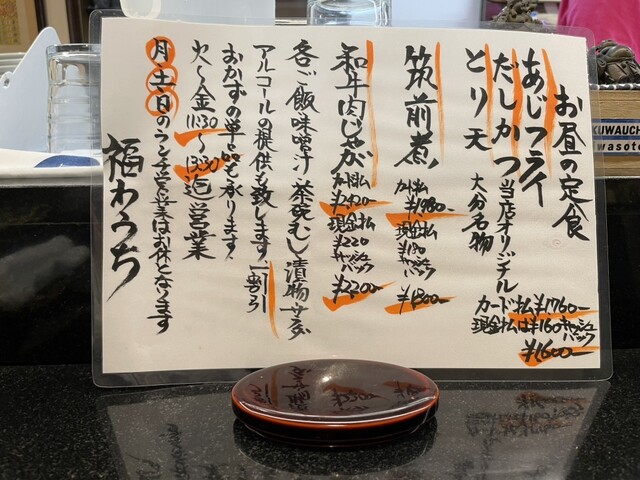 お昼の定食
あじフライ
だしかつ 当店オリジナル
とり天 大分名物
カード払¥1760-
現金払は¥160キャッシュバック
¥1600-
筑前煮
カード払
¥1980-
現金払
¥180
キャッシュバック
¥1800-
和牛肉じゃが
カード払
¥2420-
現金払
¥220
キャッシュバック
¥2200-
各ご飯 味噌汁 茶碗むし 漬物 サラダ
アルコールの提供も致します
おかずの単品も承ります
火〜金 11:30〜13:30迄営業
月・土・日のランチ営業はお休となります
福わうち
KUWAUCH
wasote